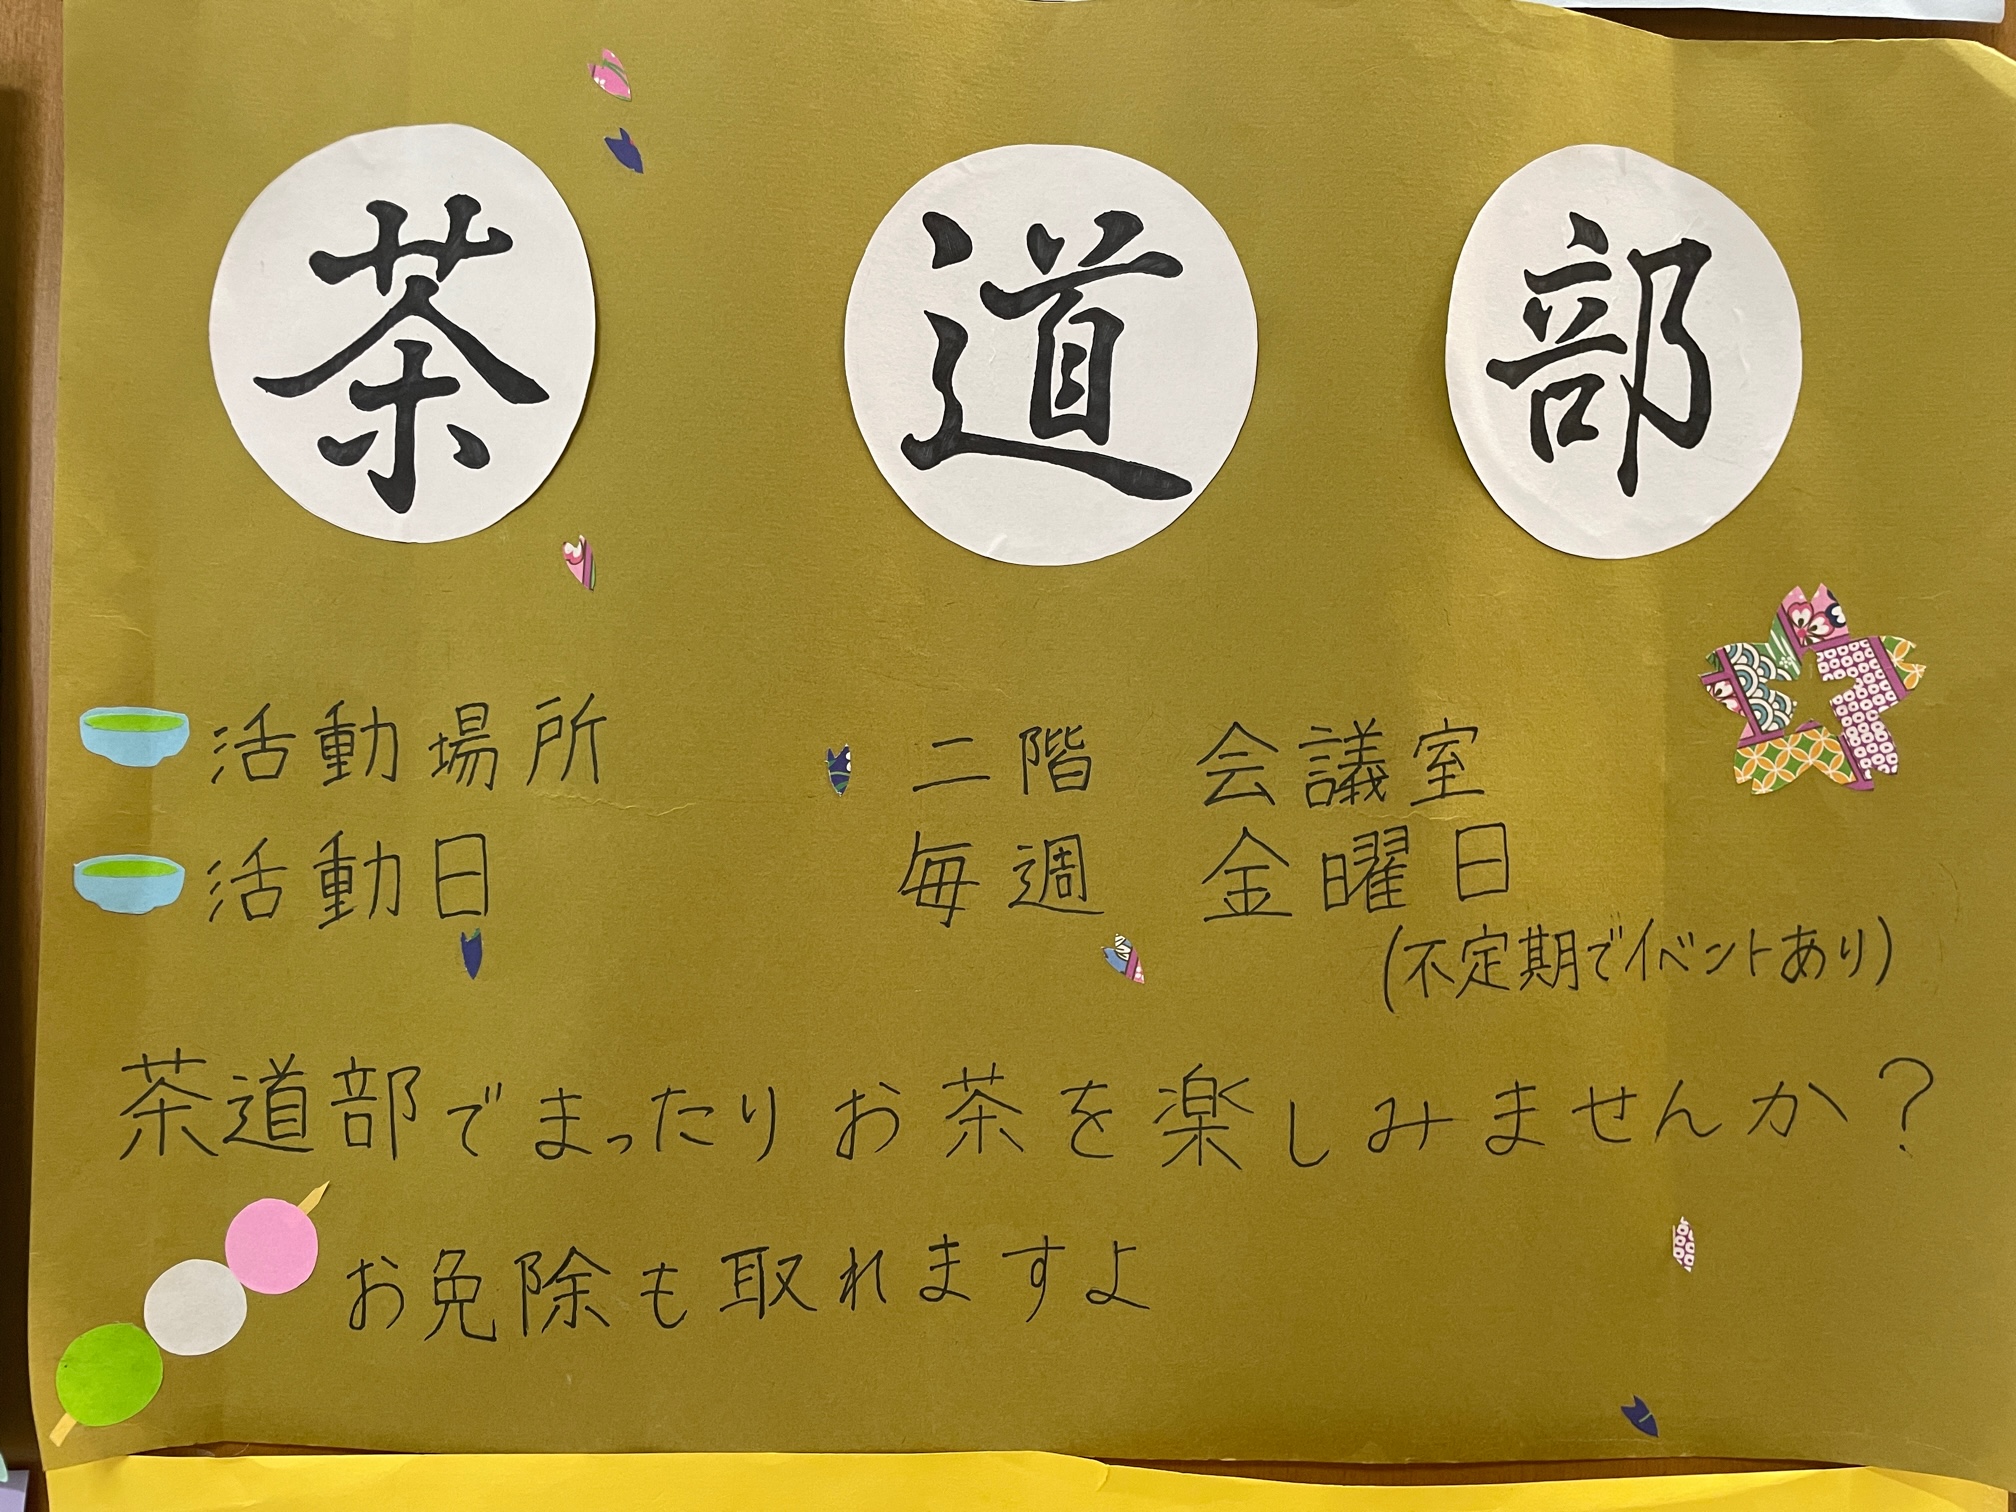 茶道部
活動場所 二階 会議室
活動日 毎週 金曜日
(不定期でイベントあり)
茶道部でまったりお茶を楽しみませんか?
お免除も取れますよ